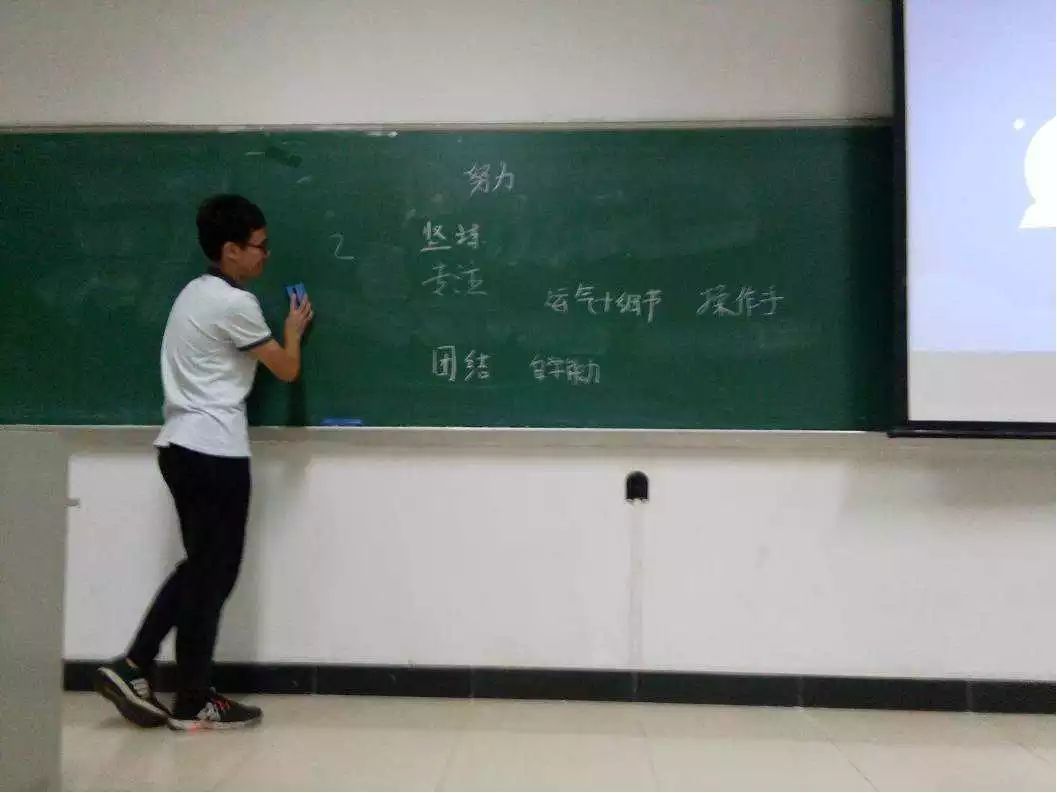 努力
2 坚持
专注
运气+细节 操作手
团结 自学能力